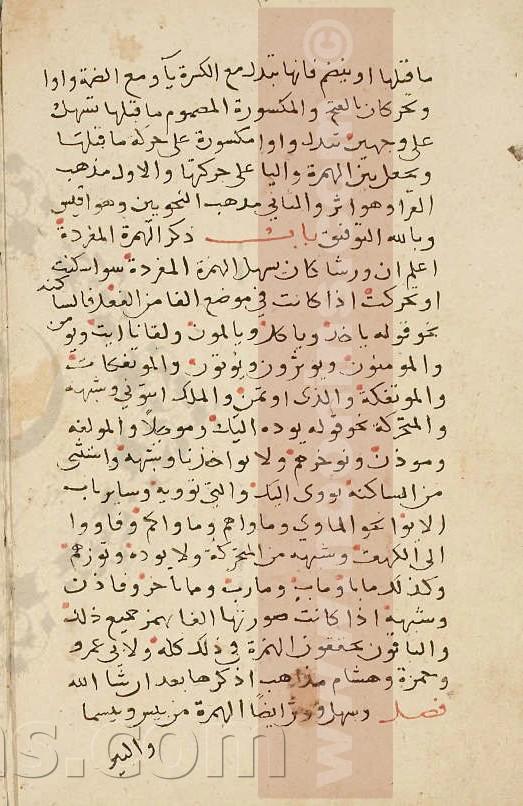 ما قبلها او ينضم فانها تبدل مع الكسرة يآ ومع الضمة واوا
وتحركان بالفتح والمكسورة المضموم ما قبلها تسهل
على وجهين تبدل واوا مكسورة على حركة ما قبلها
وتجعل بين الهمزة واليا على حركتها والاول مذهب
القرا وهو اثر والثاني مذهب النحويين وهو اقيس
وبالله التوفيق باب ذكر الهمزة المفردة
اعلم ان ورشا كان يسهل الهمزة المفردة سوا سكنت
او تحركت اذا كانت في موضع الفا من الفعل فالساكنة
نحو قوله ياخذ وياكل ويالمون ولقانا ايت ويومن
والمومنون ويوثرون ويوتون والموتفكات
والموتفكة والذى اوتمن والملك ايتوني وشبهه
والمتحركة نحو قوله يوده اليك وموجلا والمولفه
وموذن ونوخرهم ولا تواخذنا وشبهه واستثنى
من الساكنة تووى اليك والتي تؤويه وساير باب
الايوا نحو الماوي وماواهم وماواكم وفاووا
الى الكهف وشبهه من المتحركة ولا يوده وتوزهم
وكذلك مابا وماب ومارب وما تاخر وفاذن
وشبهه اذا كانت صورتها الفا بهمز جميع ذلك
والباقون يحققون الهمزة في ذلك كله ولابي عمرو
وحمزة وهشام مذاهب اذكرها بعد ان شا الله
فصل وسهل ورش ايضا الهمزة من بيس وبيسما
والبير
www.
ns.com